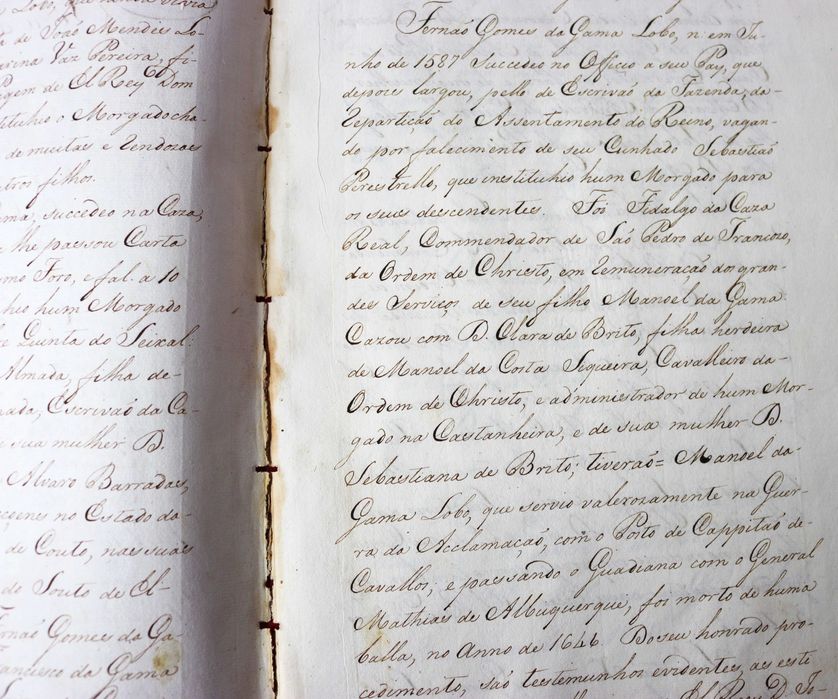 te de João Mendes Lo-
arina Vaz Pereira, fi-
El Rey Dom
stituhio o Morgado cha-
de muitas e Rendozas
utros filhos.
ama, succedeo na Caza,
e lhe passou Carta
mo Foro, e fal. a 10
hio hum Morgado
Quinta do Seixal:
Almada, filha de-
mada, Escrivaõ da Ca-
e sua mulher D.
Alvaro Barradas,
no Estado da-
de Couto, nas suas
do Souto de El-
Fernaõ Gomes da Ga-
Francisco da Gama
Fernaõ Gomes da Gama Lobo, n. em Ju-
nho de 1587 Succedeo no Officio a seu Pay, que
depoes largou, pello de Escrivaõ da Fazenda, da-
Repartiçaõ do Assentamento do Reino, vagan-
do por falecimento de seu Cunhado Sebastiaõ
Perestrello, que instituhio hum Morgado para
os seus descendentes. Foi Fidalgo da Caza
Real, Commendador de Saõ Pedro de Francozo,
da Ordem de Christo, em Remuneraçaõ dos gran-
des Serviços de seu filho Manoel da Gama.
Cazou com D. Clara de Brito, filha herdeira
de Manoel da Costa Siqueira, Cavalleiro da-
Ordem de Christo, e administrador de hum Mor-
gado na Castanheira, e de sua mulher D.
Sebastiana de Brito; tiveraõ = Manoel da-
Gama Lobo, que servio valerozamente na Guer-
ra da Acclamaçaõ, com o Posto de Cappitaõ de-
Cavallos; e passando o Guadiana com o General
Mathias de Albuquerque, foi morto de huma
balla, no Anno de 1646. Do seu honrado pro-
cedimento, saõ testemunhos evidentes, as este